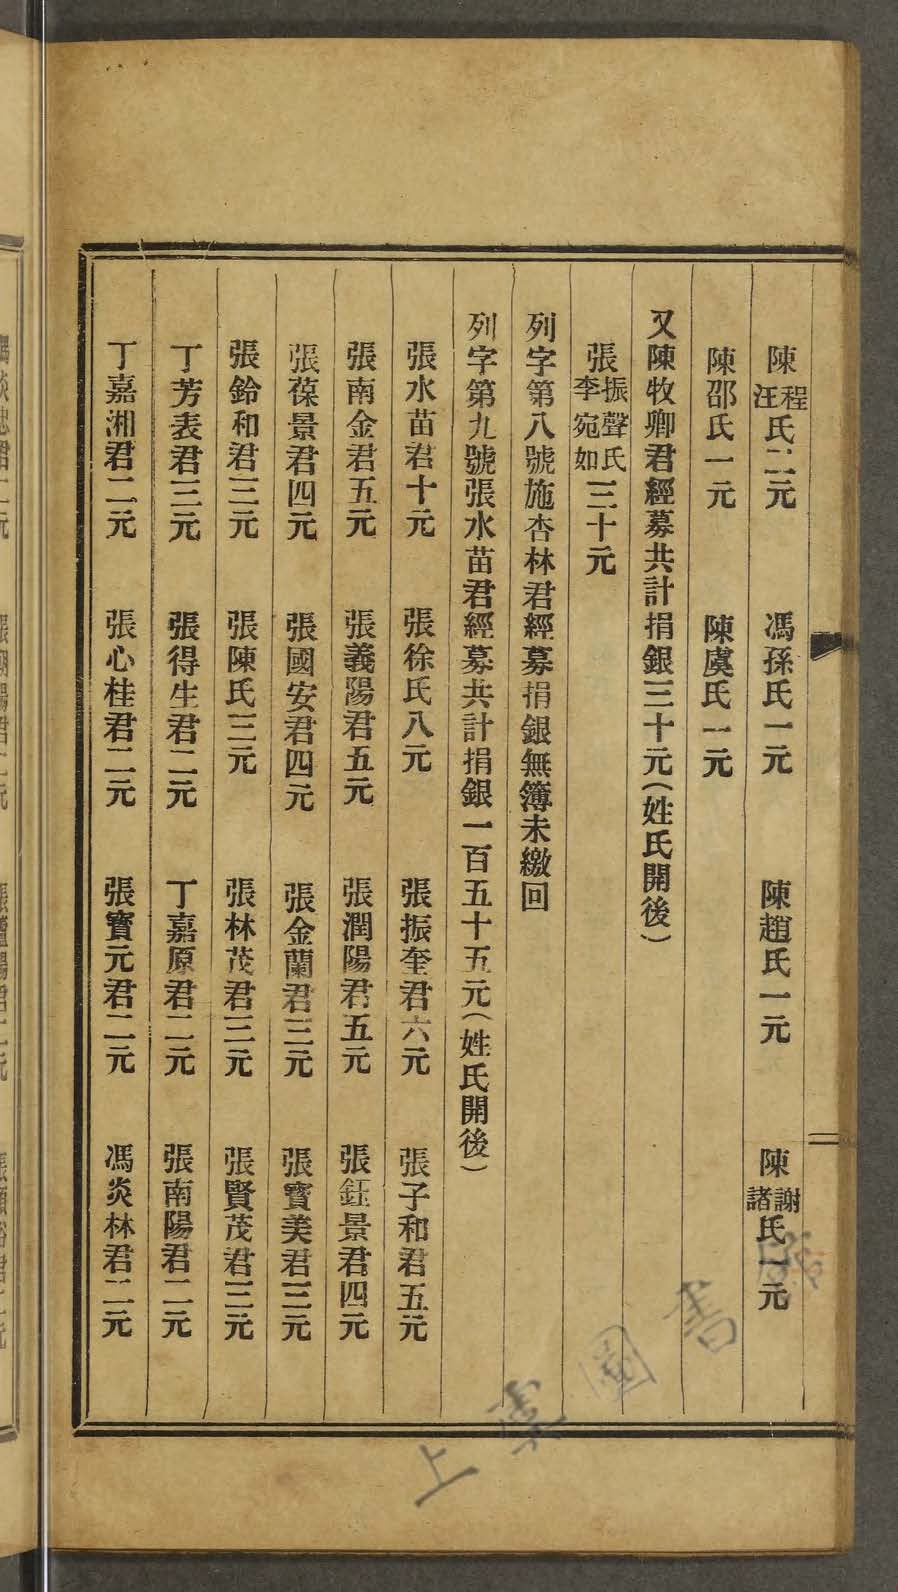 陳程汪氏二元　馮孫氏一元　陳趙氏一元　陳謝諸氏一元
陳邵氏一元　陳虞氏一元
又陳牧卿君經募共計捐銀三十元（姓氏開後）
張振聲李氏宛如三十元
列字第八號施杏林君經募捐銀無簿未繳回
列字第九號張水苗君經募共計捐銀一百五十五元（姓氏開後）
張水苗君十元　張徐氏八元　張振奎君六元　張子和君五元
張南金君五元　張義陽君五元　張潤陽君五元　張鈺景君四元
張葆景君四元　張國安君四元　張金蘭君三元　張寳美君三元
張鈴和君三元　張陳氏三元　張林茂君三元　張賢茂君三元
丁芳表君三元　張得生君二元　丁嘉原君二元　張南陽君二元
丁嘉湘君二元　張心桂君二元　張寳元君二元　馮炎林君二元
上虞圖書館